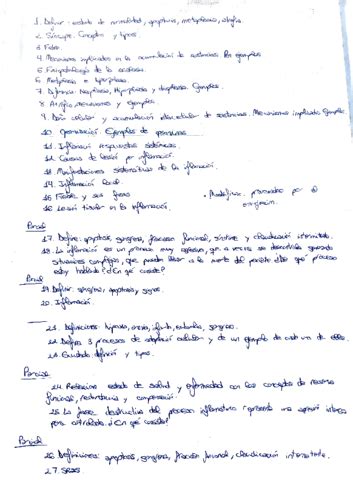 1. Definir: estado de normalidad, apoptosis, metaplasia, atrofia.
2. Síncope. Concepto y tipos.
3. Fiebre.
4. Mecanismos implicados en la acumulación de sustancias. Por ejemplos
5. Fisiopatología de la
6. Metaplasia e hiperplasia.
7. Diferencia Neoplasia, Hiperplasia y displasia. Ejemplos.
8. Atrofia. Mecanismos y ejemplos.
9. Daño celular y acumulación intracelular de sustancias. Mecanismos implicados. Ejemplos
10. Ejemplos de
11. Inflamación respuestas sistémicas.
12. Causas de lesión por inflamación.
13. Manifestaciones sistemáticas de la inflamación.
14. Inflamación local.
15. Fiebre y sus fases
16. Lesión tisular en la inflamación.
Parcial
17. Define: apoptosis, gangrena, fracaso funcional, síndrome y claudicación intermitente.
18. La inflamación es un proceso muy agresivo, que a veces se descontrola generando situaciones complejas, que pueden llevar a la muerte del paciente ¿De qué proceso
estoy hablando? ¿En qué consiste?
Parcial
19. Definir: gangrena, apoptosis, signos.
20. Inflamación.
21. Definiciones: hipoxia, infarto, gangrena.
22. Define 3 procesos de adaptación celular y de un ejemplo de cada uno de ellos.
23. definición y tipos.
Parcial
24. Relaciona estado de salud y enfermedad con los conceptos de reserva
funcional, redundancia y compensación.
25. La fase destructiva del proceso inflamatorio representa una
para ¿En qué consiste?
Parcial
26. Definiciones: apoptosis, gangrena, fracaso funcional, claudicación intermitente.
27. SRIS